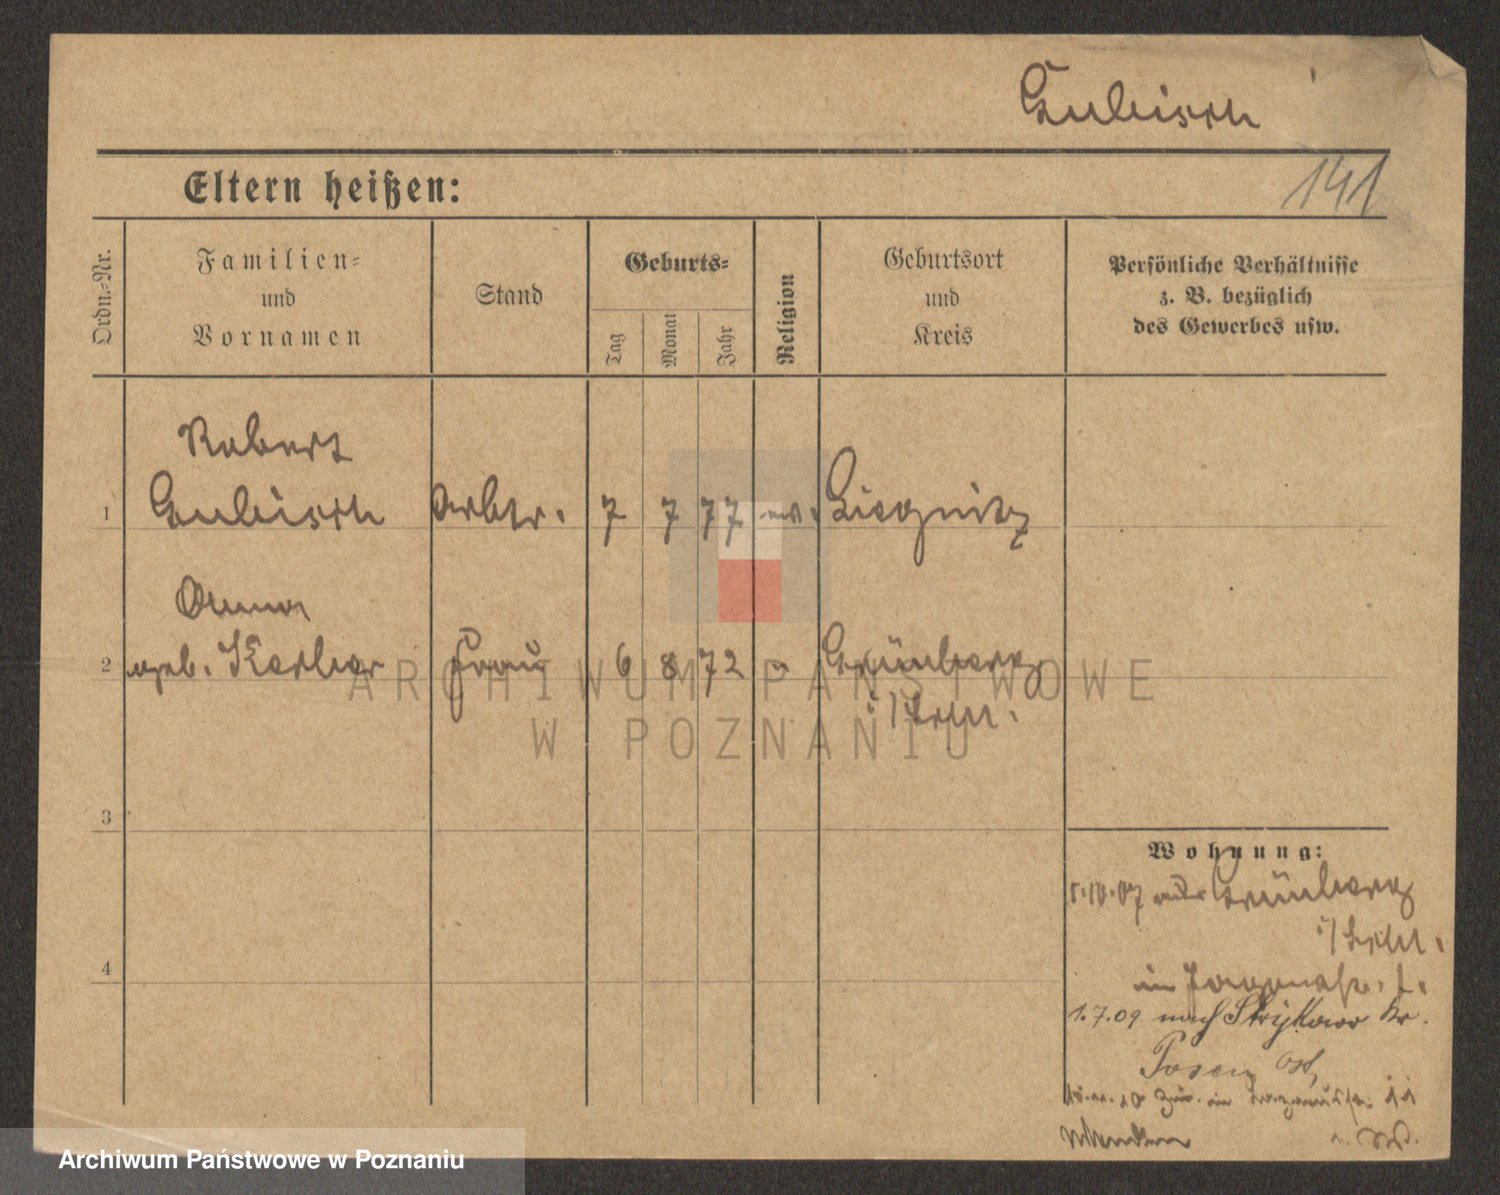 Gubisch
141
Eltern heißen:
Ordn.-Nr.
Familien-
und
Vornamen
Stand
Geburts-
Tag
Monat
Jahr
Religion
Geburtsort
und
Kreis
Persönliche Verhältnisse
z. B. bezüglich
des Gewerbes usw.
Robert
1 Gubisch Arbtr. 7 7 77 ev. Liegnitz
Anna
2 geb. Frau 6 8 72 " Grünberg
i/Schl.
3
4
Wohnung:
1.10.07 aus Grünberg
i/Schl.
in
1.7.09 nach Strykowo Kr.
Posen Ost,
10 zur. in 11
ARCHIWUM PAŃSTWOWE
W POZNANIU
Archiwum Państwowe w Poznaniu